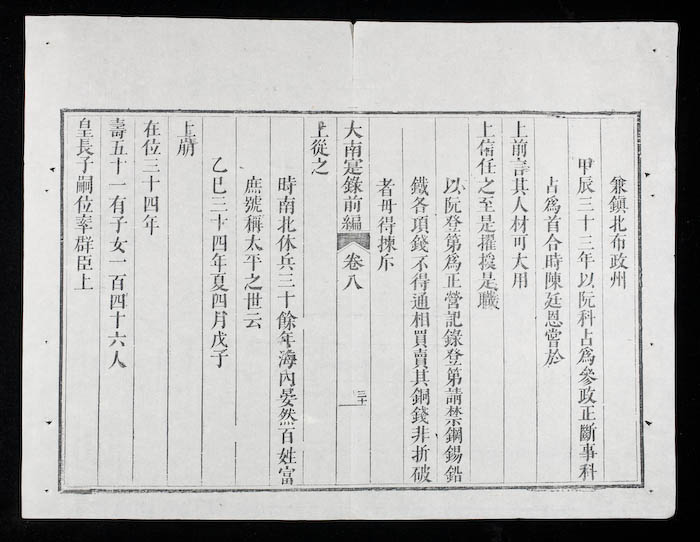 兼鎮北布政州
甲辰三十三年以阮科占爲參政正斷事科
占爲首合時陳廷恩嘗於
上前壽其人材可大用
上信任之至是擢授是職
以阮登第爲正營記錄登第請禁鋼錫鉛
鐵各項錢不得通相買賣其銅錢非折破
者毋得揀斥
大南寔錄前編 卷八 三十
上從之
時南北休兵三十餘年海內晏然百姓富
庶號稱太平之世云
乙巳三十四年夏四月戊子
上崩
在位三十四年
壽五十一有子女一百四十六人
皇長子嗣位率群臣上